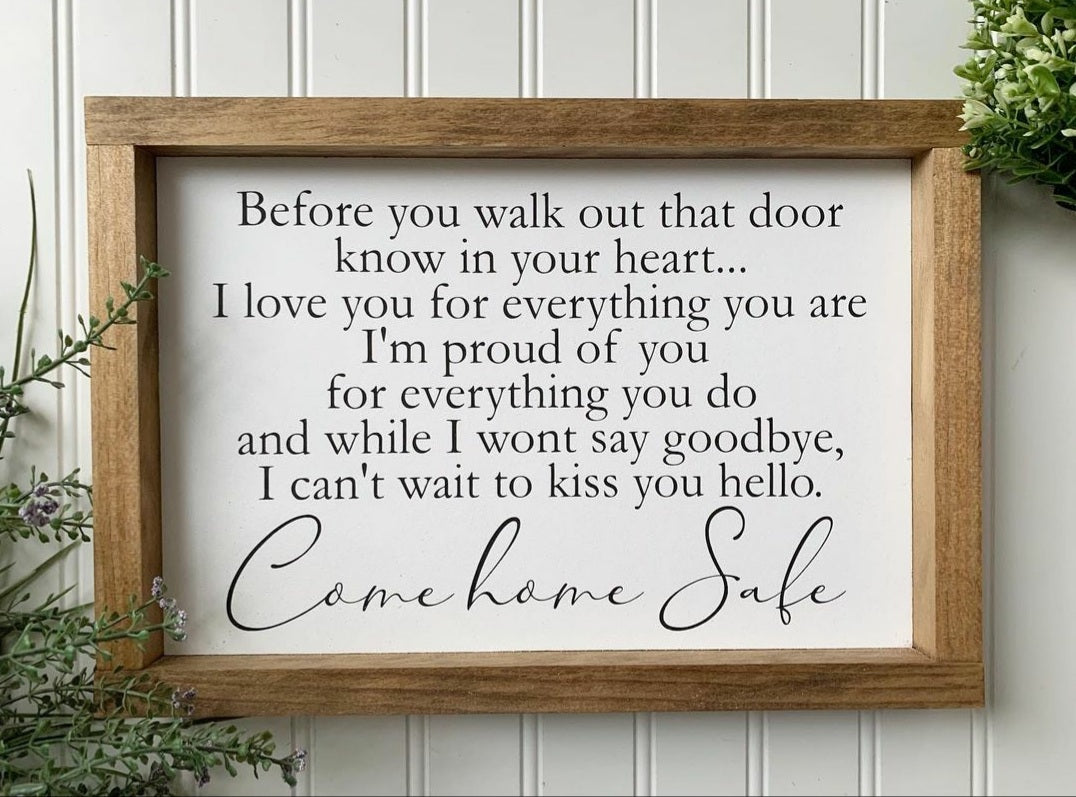 Before you walk out that door
know in your heart...
I love you for everything you are
I'm proud of you
for everything you do
and while I wont say goodbye,
I can't wait to kiss you hello.
Come home Safe